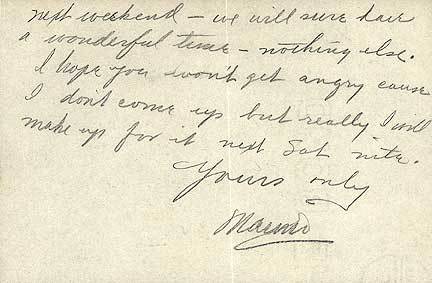 next weekend — we will sure have
a wonderful time — nothing else.
I hope you won't get angry cause
I don't come up but really I will
make up for it next Sat nite.
Yours only